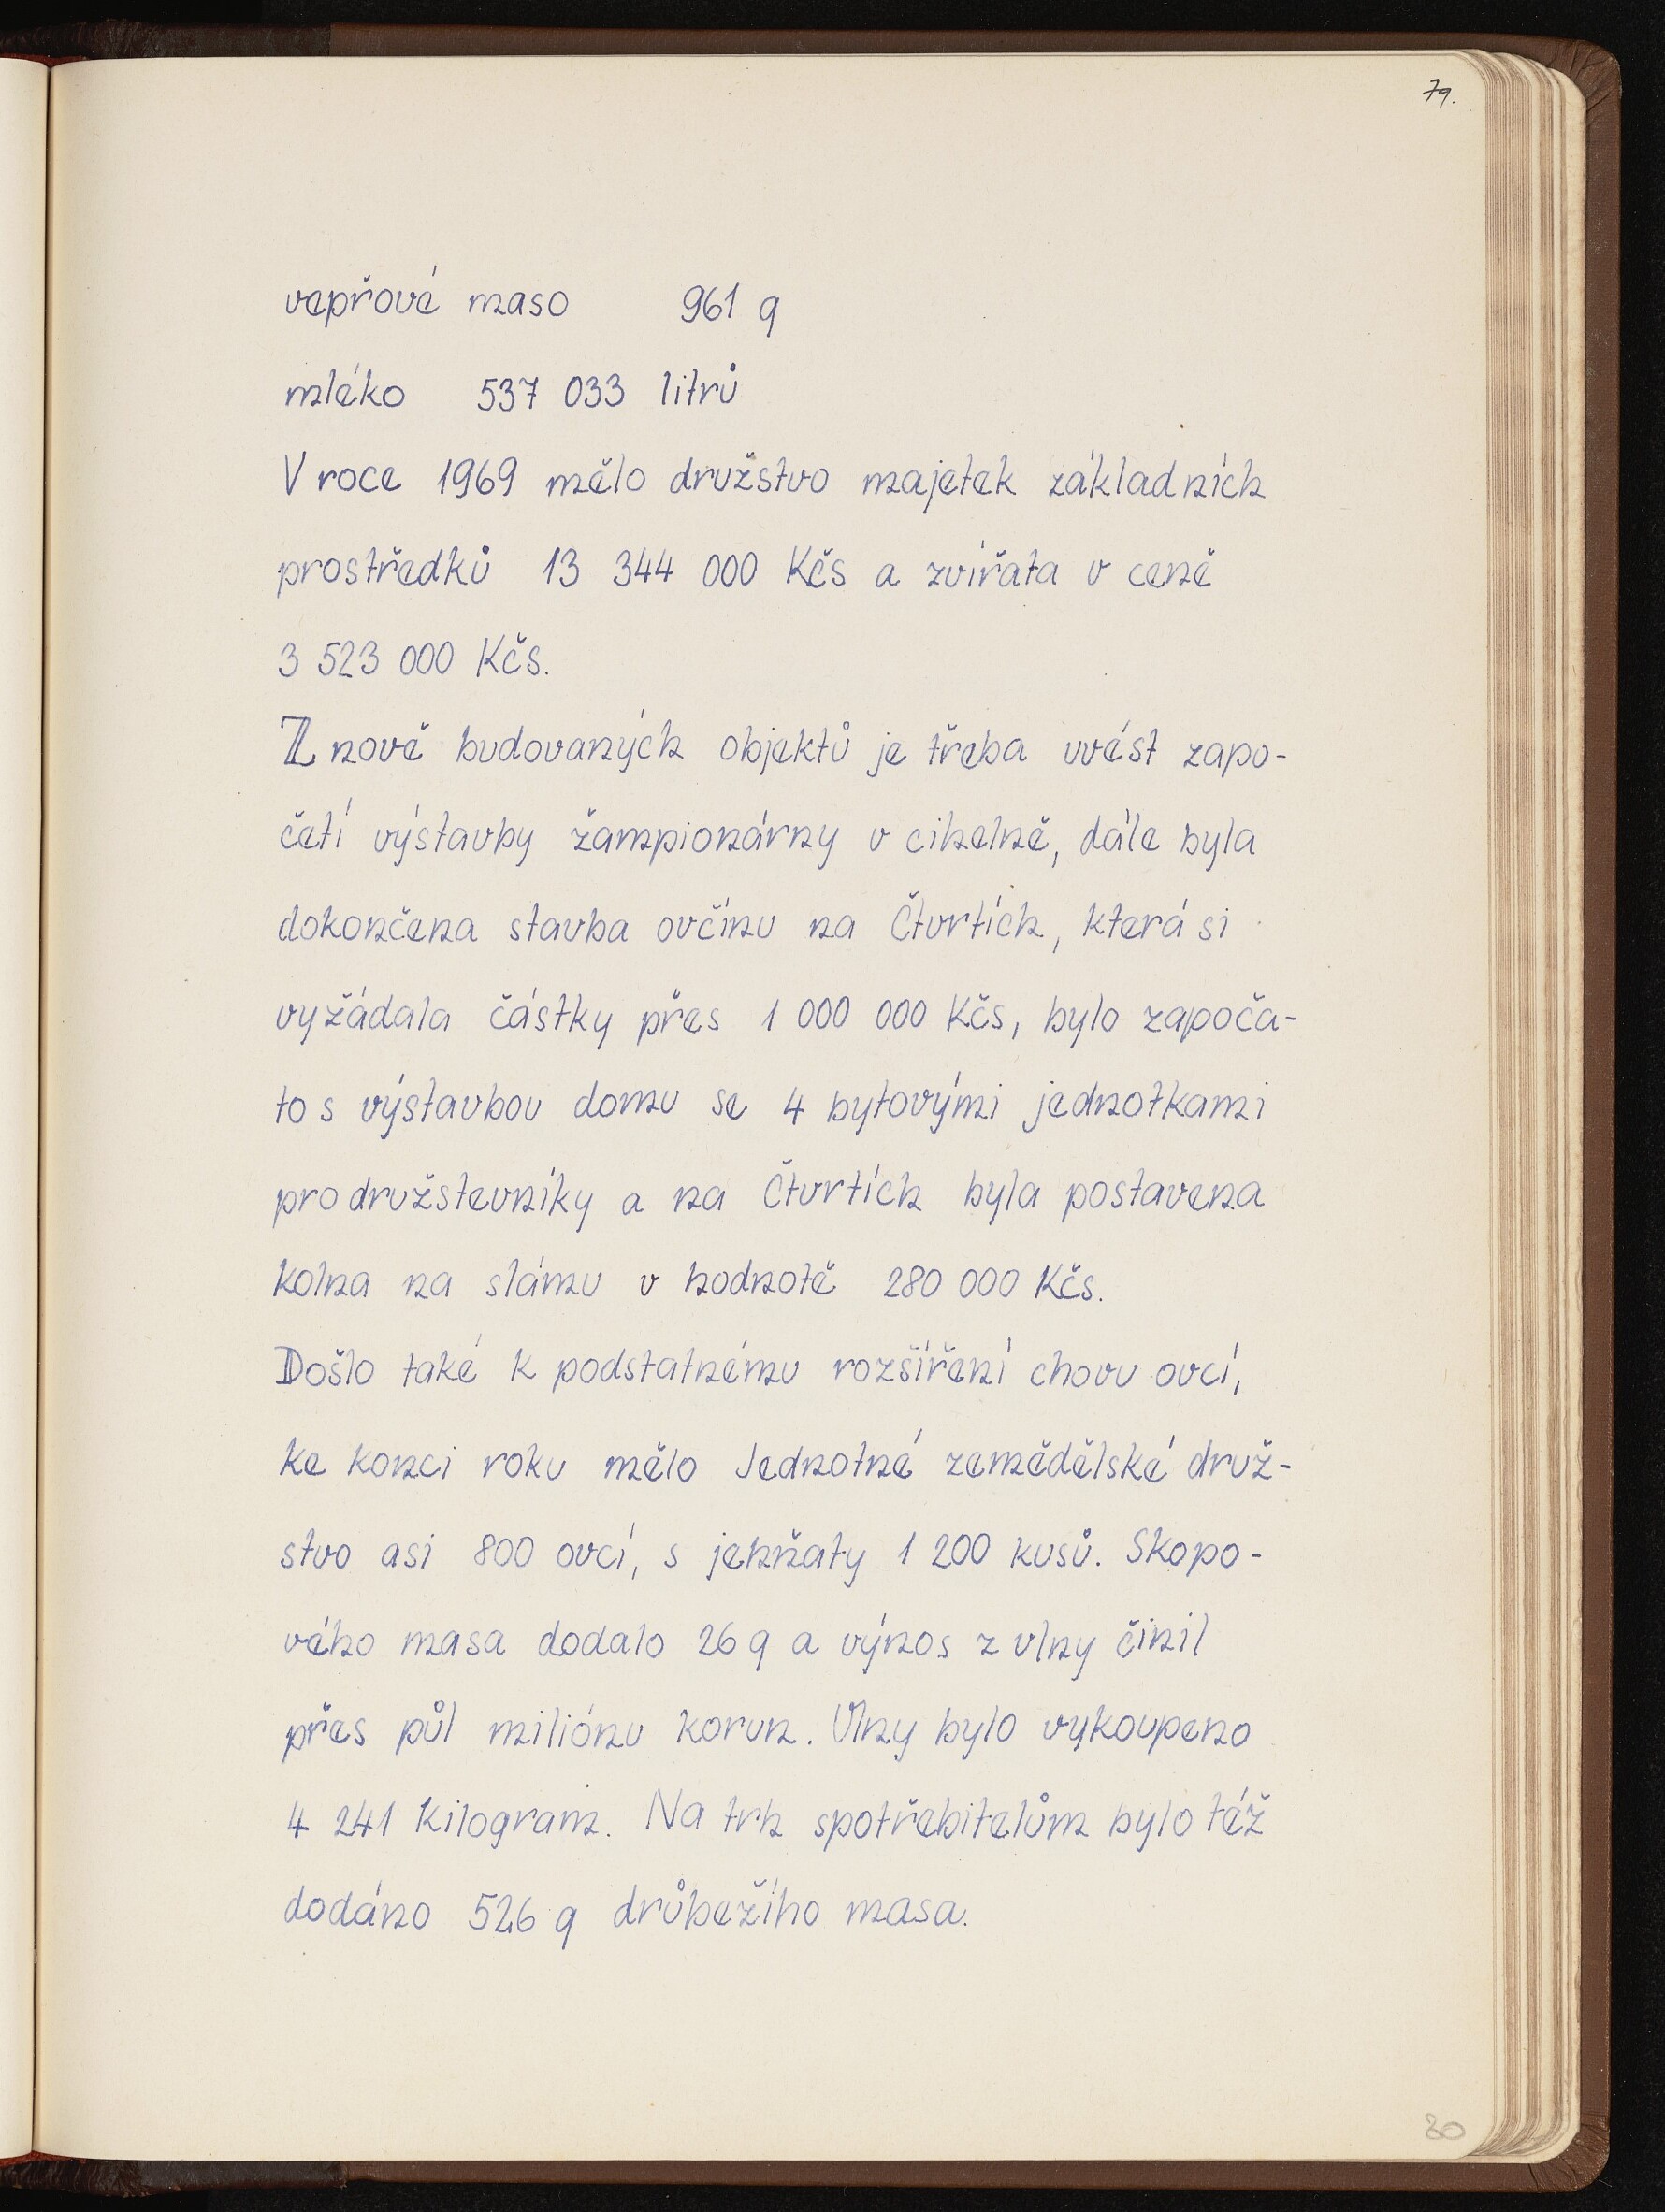 79.
vepřové maso 961 q
mléko 537 033 litrů
V roce 1969 mělo družstvo majetek základních
prostředků 13 344 000 Kčs a zvířata v ceně
3 523 000 Kčs.
Z nově budovaných objektů je třeba uvést zapo-
četí výstavby žampionárny v cihelně, dále byla
dokončena stavba ovčínu na Čtvrtích, která si
vyžádala částky přes 1 000 000 Kčs, bylo započa-
to s výstavbou domu se 4 bytovými jednotkami
pro družstevníky a na Čtvrtích byla postavena
kolna na slámu v hodnotě 280 000 Kčs.
Došlo také k podstatnému rozšíření chovu ovcí,
ke konci roku mělo Jednotné zemědělské druž-
stvo asi 800 ovcí, s jehňaty 1 200 kusů. Skopo-
vého masa dodalo 26 q a výnos z vlny činil
přes půl miliónu korun. Vlny bylo vykoupeno
4 241 kilogram. Na trh spotřebitelům bylo též
dodáno 526 q drůbežího masa.
80